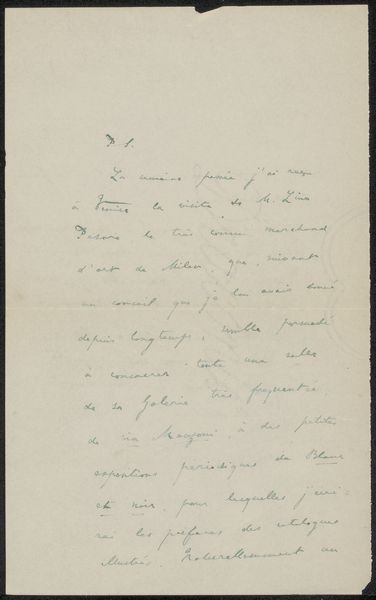 P. S.
La semaine passée j'ai reçu
à Venise la visite de M. Lino
Pesaro le très connu marchand
d'art de Milan, que, suivant
un conseil que je lui avais donné
depuis longtemps, semble persuadé
à consacrer toute une salle
de sa Galerie très fréquentée
de via Manzoni, à des petites
expositions périodiques de Blanc
et noir, pour lesquelles j'écri-
rai les préfaces des catalogues
illustrés. Naturellement au